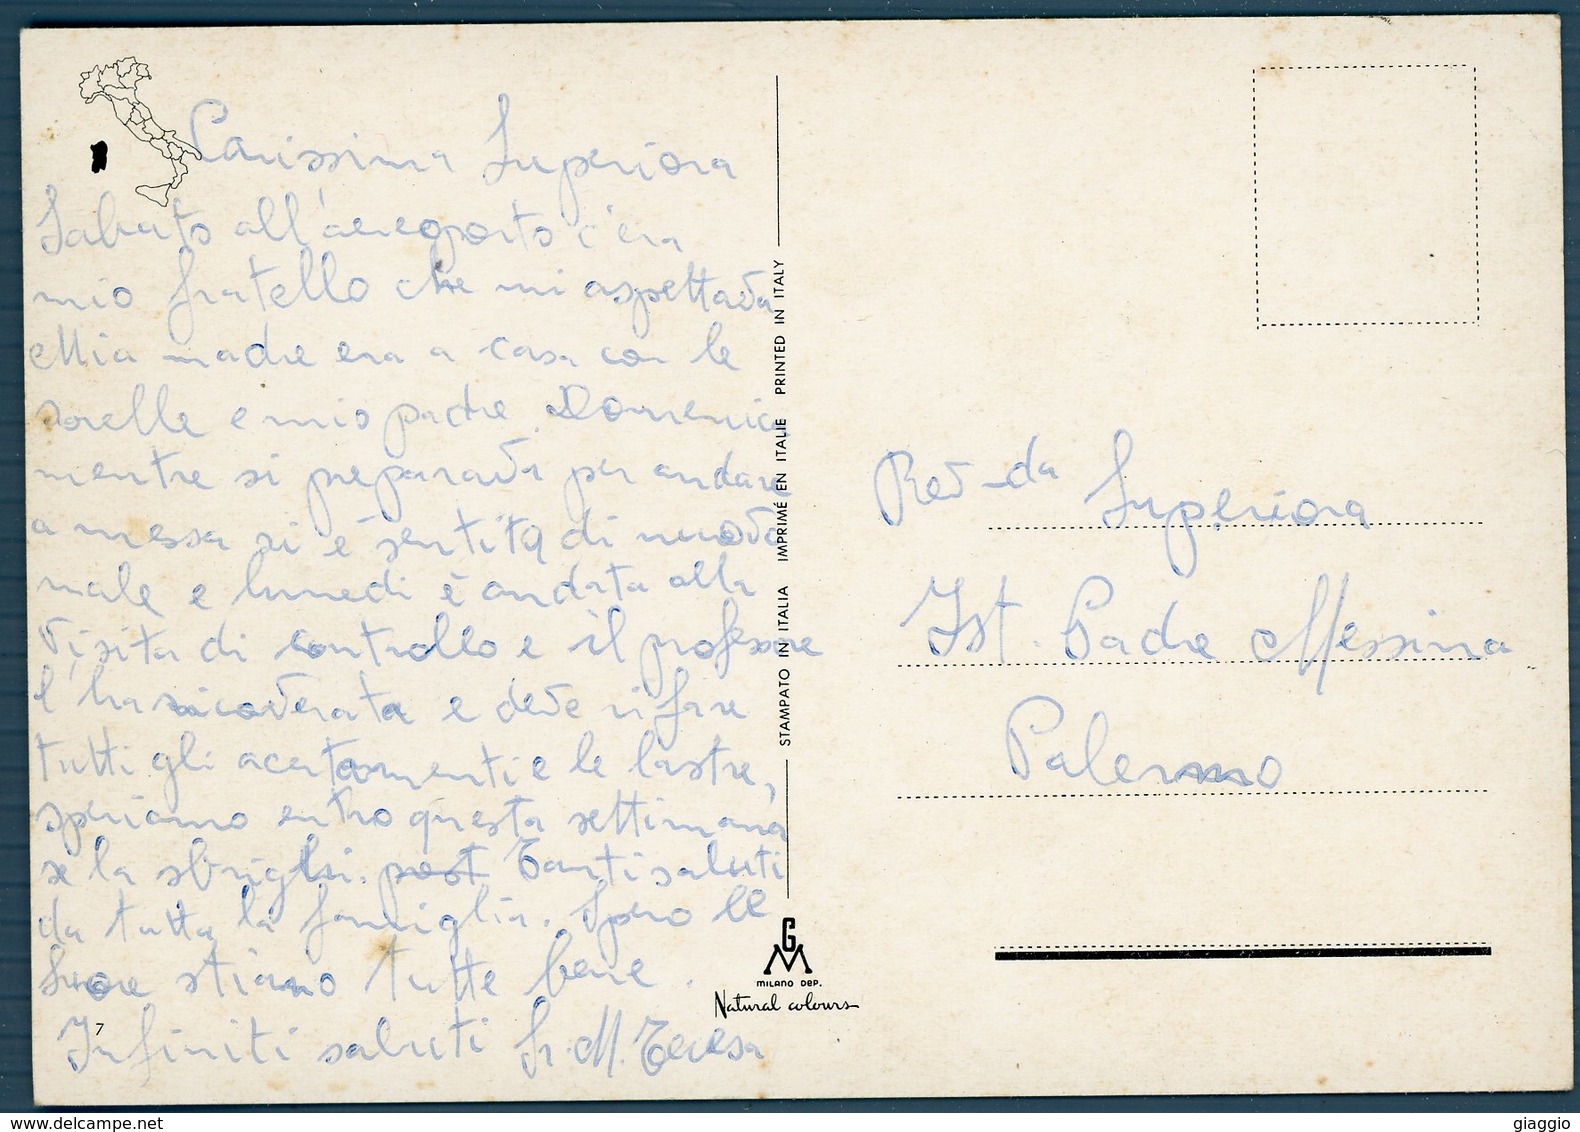 Carissima Superiora
Sabato all'aereoporto c'era
mio fratello che mi aspettava
Mia madre era a casa con le
sorelle e mio padre. Domenica
mentre si preparava per andare
a messa si è sentita di nuovo
male e lunedì è andata alla
visita di controllo e il professore
l'ha ricoverata e deve rifare
tutti gli acertamenti e le lastre,
speriamo entro questa settimana
se la sbrighi. post Tanti saluti
da tutta la famiglia. Spero le
Suore stiano tutte bene.
Infiniti saluti Sr. M. Teresa
7
STAMPATO IN ITALIA IMPRIMÉ EN ITALIE PRINTED IN ITALY
GM
MILANO DEP.
Natural colours
Rev-da Superiora
Ist. Padre Messina
Palermo
giaggio